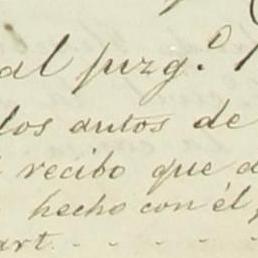 al juzg.º
los autos de
recibo que
hecho con él
art. - - - - -